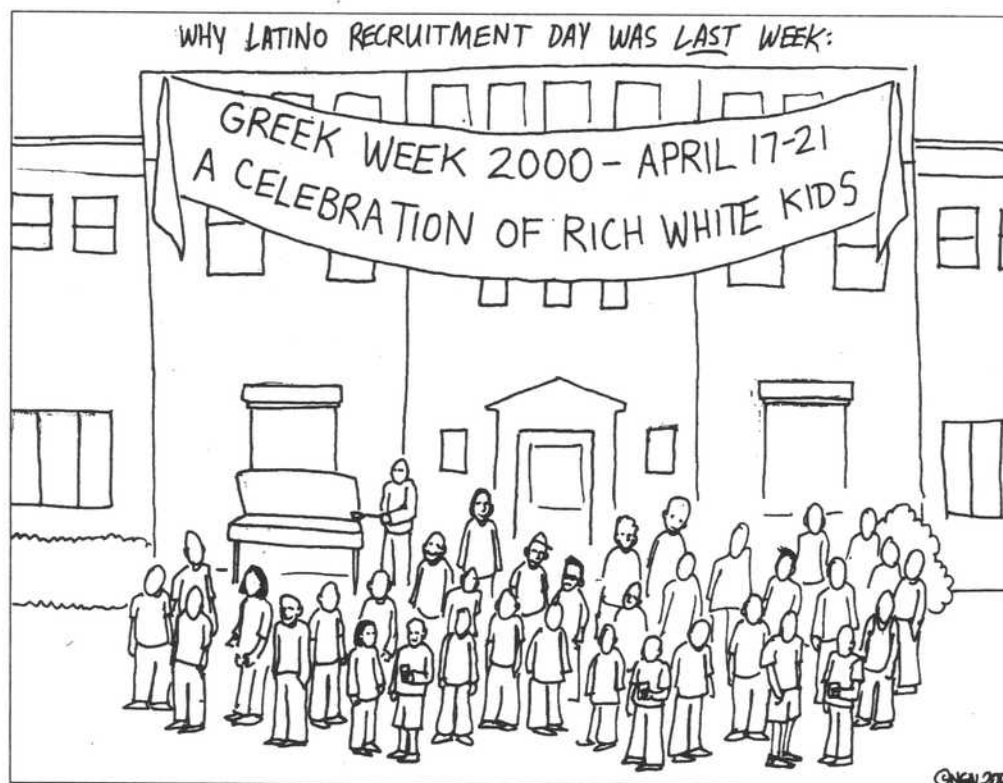 WHY LATINO RECRUITMENT DAY WAS LAST WEEK:
GREEK WEEK 2000 - APRIL 17-21
A CELEBRATION OF RICH WHITE KIDS